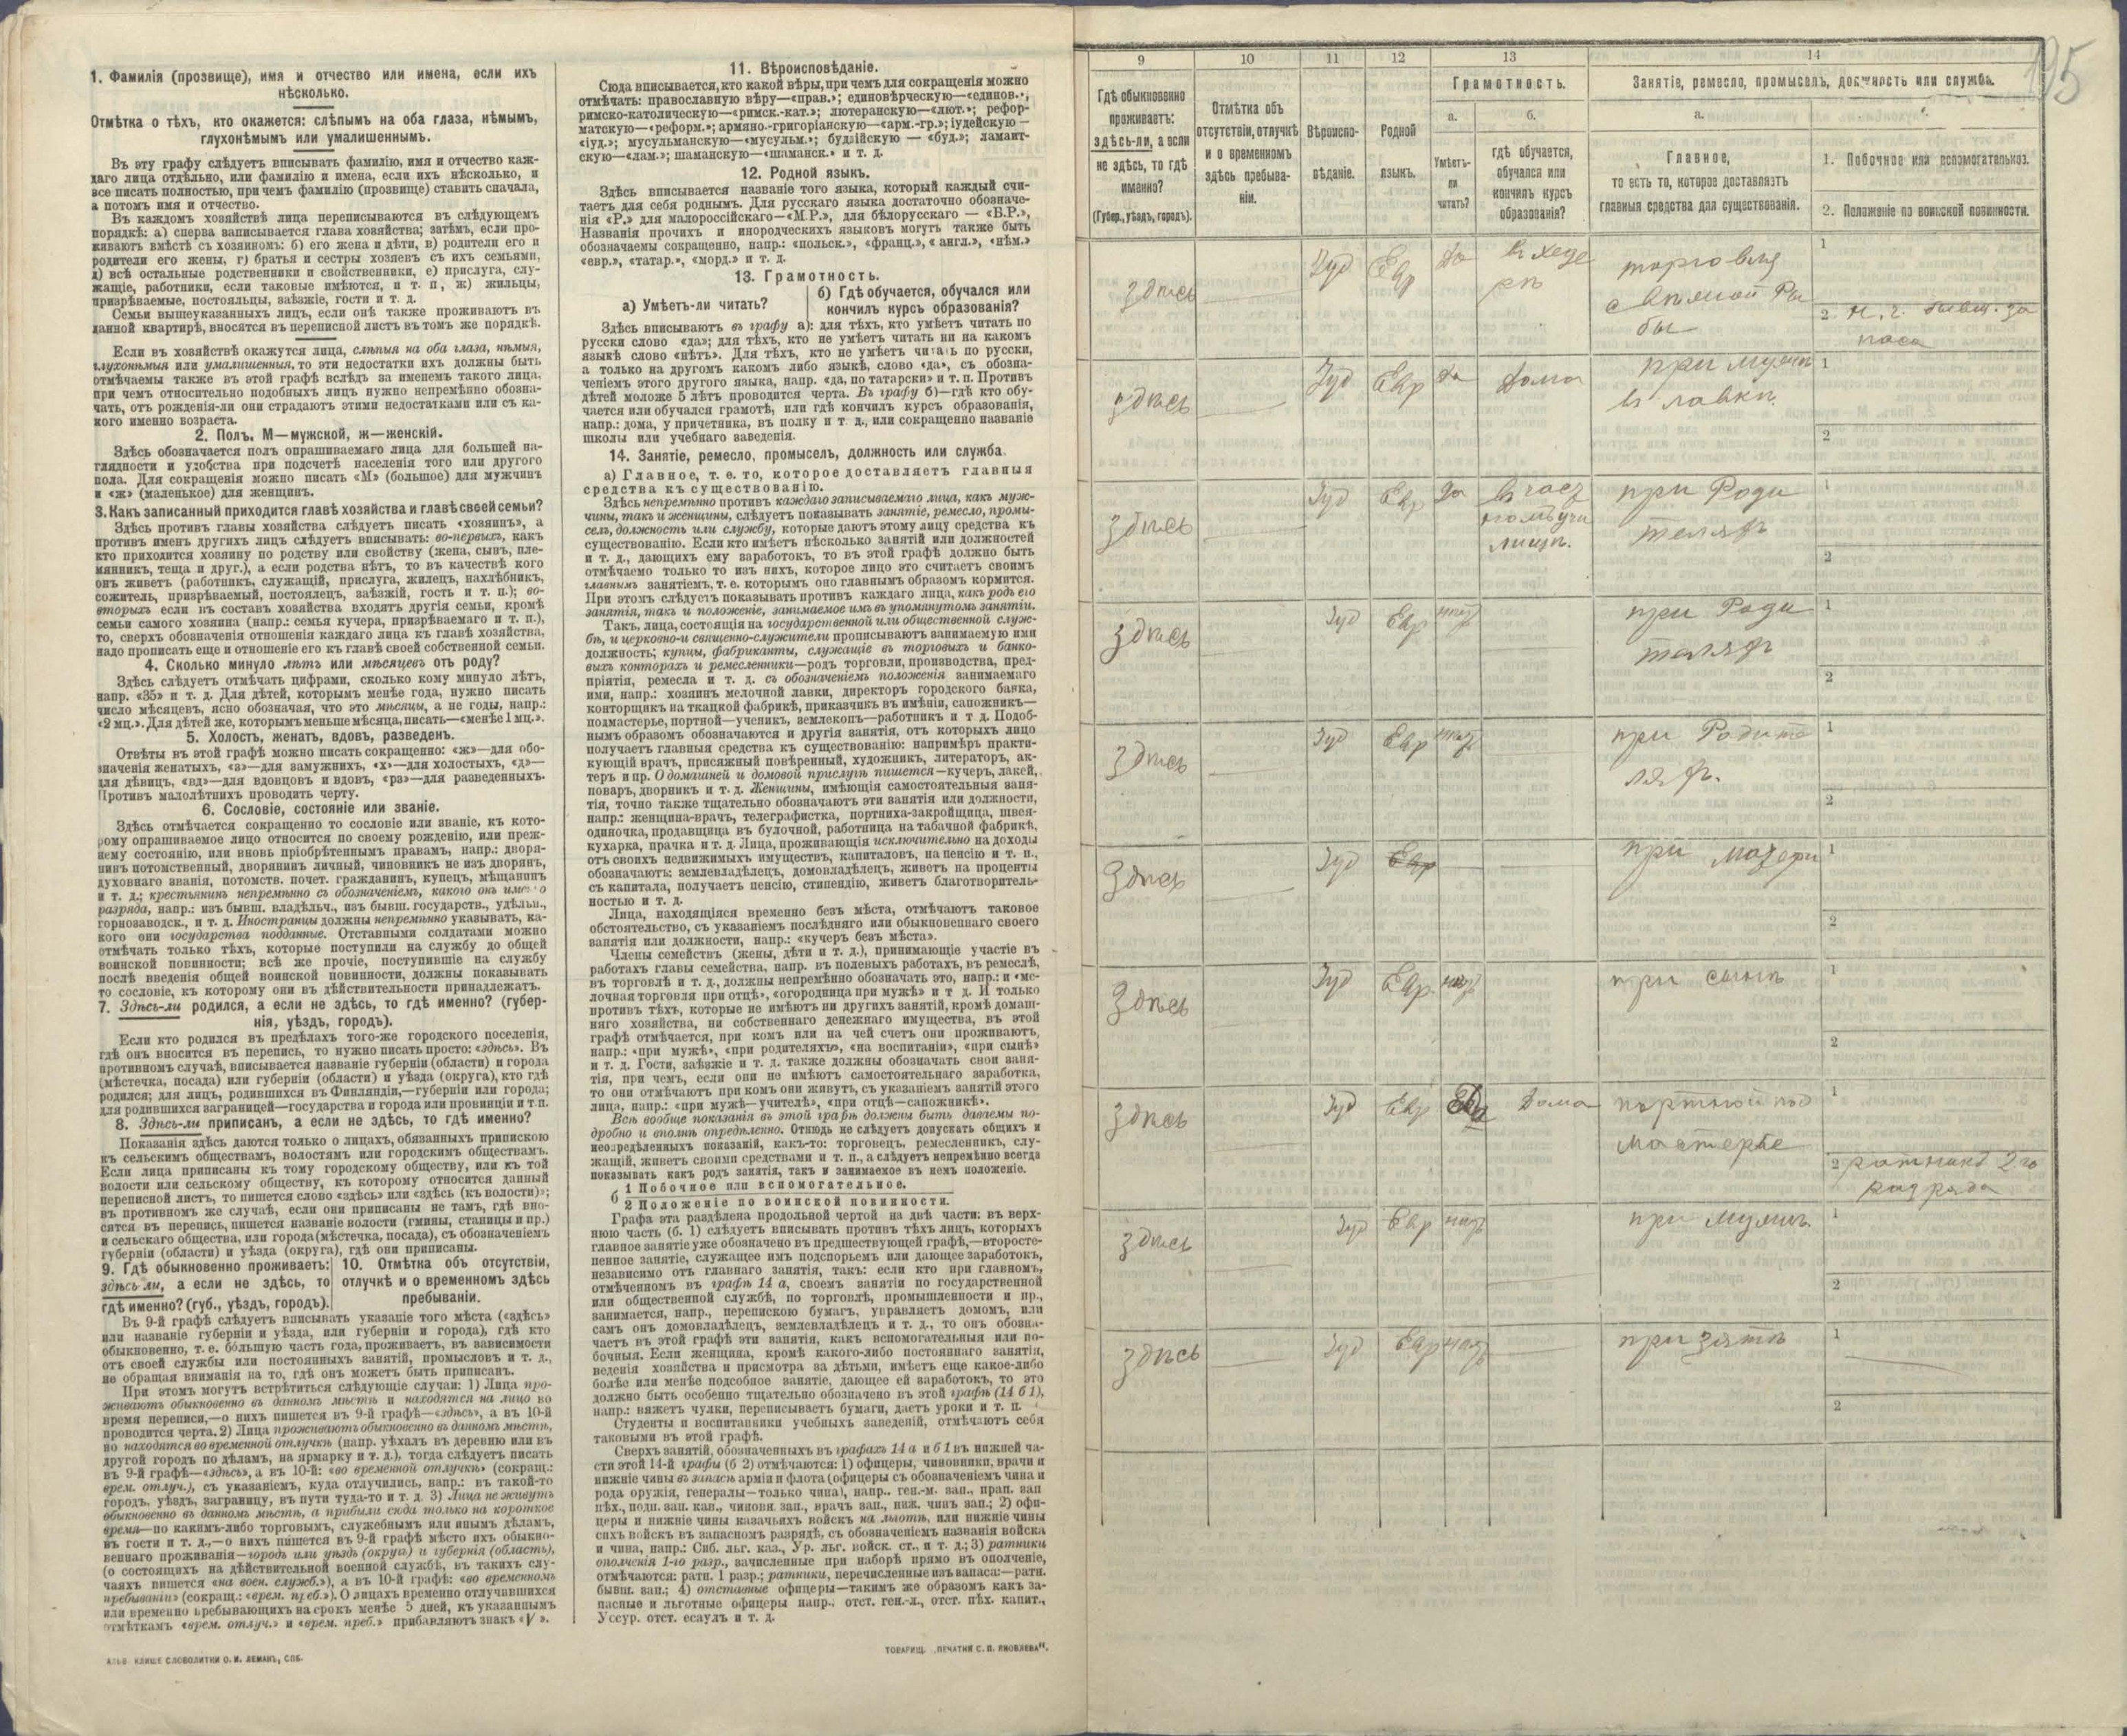 1. Фамилія (прозвище), имя и отчество или имена, если ихъ
нѣсколько.
Отмѣтка о тѣхъ, кто окажется: слѣпымъ на оба глаза, нѣмымъ,
глухонѣмымъ или умалишеннымъ.
Въ эту графу слѣдуетъ вписывать фамилію, имя и отчество каж-
даго лица отдѣльно, или фамилію и имена, если ихъ нѣсколько, и
все писать полностью, при чемъ фамилію (прозвище) ставить сначала,
а потомъ имя и отчество.
Въ каждомъ хозяйствѣ лица переписываются въ слѣдующемъ
порядкѣ: а) сперва записывается глава хозяйства; затѣмъ, если про-
живаютъ вмѣстѣ съ хозяиномъ: б) его жена и дѣти, в) родители его и
родители его жены, г) братья и сестры хозяевъ съ ихъ семьями,
д) всѣ остальные родственники и свойственники, е) прислуга, слу-
жащіе, работники, если таковые имѣются, и т. п, ж) жильцы,
призрѣваемые, постояльцы, заѣзжіе, гости и т. д.
Семьи вышеуказанныхъ лицъ, если онѣ также проживаютъ въ
данной квартирѣ, вносятся въ переписной листъ въ томъ же порядкѣ.
Если въ хозяйствѣ окажутся лица, слѣпыя на оба глаза, нѣмыя,
глухонѣмыя или умалишенныя, то эти недостатки ихъ должны быть
отмѣчаемы также въ этой графѣ вслѣдъ за именемъ такого лица,
при чемъ относительно подобныхъ лицъ нужно непремѣнно обозна-
чать, отъ рожденія-ли они страдаютъ этими недостатками или съ ка-
кого именно возраста.
2. Полъ. М—мужской, ж—женскій.
Здѣсь обозначается полъ опрашиваемаго лица для большей на-
глядности и удобства при подсчетѣ населенія того или другого
пола. Для сокращенія можно писать «М» (большое) для мужчинъ
и «ж» (маленькое) для женщинъ.
3. Какъ записанный приходится главѣ хозяйства и главѣ своей семьи?
Здѣсь противъ главы хозяйства слѣдуетъ писать «хозяинъ», а
противъ именъ другихъ лицъ слѣдуетъ вписывать: во-первыхъ, какъ
кто приходится хозяину по родству или свойству (жена, сынъ, пле-
мянникъ, теща и друг.), а если родства нѣтъ, то въ качествѣ кого
онъ живетъ (работникъ, служащій, прислуга, жилецъ, нахлѣбникъ,
сожитель, призрѣваемый, постоялецъ, заѣзжій, гость и т. п.); во-
вторыхъ если въ составъ хозяйства входятъ другія семьи, кромѣ
семьи самого хозяина (напр.: семья кучера, призрѣваемаго и т. п.),
то, сверхъ обозначенія отношенія каждаго лица къ главѣ хозяйства,
надо прописать еще и отношеніе его къ главѣ своей собственной семьи.
4. Сколько минуло лѣтъ или мѣсяцевъ отъ роду?
Здѣсь слѣдуетъ отмѣчать цифрами, сколько кому минуло лѣтъ,
напр. «35» и т. д. Для дѣтей, которымъ менѣе года, нужно писать
число мѣсяцевъ, ясно обозначая, что это мѣсяцы, а не годы, напр.:
«2 мц.». Для дѣтей же, которымъ меньше мѣсяца, писать—«менѣе 1 мц.».
5. Холостъ, женатъ, вдовъ, разведенъ.
Отвѣты въ этой графѣ можно писать сокращенно: «ж»—для обо-
значенія женатыхъ, «з»—для замужнихъ, «х»—для холостыхъ, «д»—
для дѣвицъ, «вд»—для вдовцовъ и вдовъ, «рз»—для разведенныхъ.
Противъ малолѣтнихъ проводить черту.
6. Сословіе, состояніе или званіе.
Здѣсь отмѣчается сокращенно то сословіе или званіе, къ кото-
рому опрашиваемое лицо относится по своему рожденію, или преж-
нему состоянію, или вновь пріобрѣтеннымъ правамъ, напр.: дворя-
нинъ потомственный, дворянинъ личный, чиновникъ не изъ дворянъ,
духовнаго званія, потомств. почет. гражданинъ, купецъ, мѣщанинъ
и т. д.; крестьянинъ непремѣнно съ обозначеніемъ, какого онъ имен о
разряда, напр.: изъ бывш. владѣльч., изъ бывш. государств., удѣльн.,
горнозаводск., и т. д. Иностранцы должны непремѣнно указывать, ка-
кого они государства подданные. Отставными солдатами можно
отмѣчать только тѣхъ, которые поступили на службу до общей
воинской повинности; всѣ же прочіе, поступившіе на службу
послѣ введенія общей воинской повинности, должны показывать
то сословіе, къ которому они въ дѣйствительности принадлежатъ.
7. Здѣсь-ли родился, а если не здѣсь, то гдѣ именно? (губер-
нія, уѣздъ, городъ).
Если кто родился въ предѣлахъ того-же городского поселенія,
гдѣ онъ вносится въ перепись, то нужно писать просто: «здѣсь». Въ
противномъ случаѣ, вписывается названіе губерніи (области) и города
(мѣстечка, посада) или губерніи (области) и уѣзда (округа), кто гдѣ
родился; для лицъ, родившихся въ Финляндіи,—губерніи или города;
для родившихся заграницей—государства и города или провинціи и т. п.
8. Здѣсь-ли приписанъ, а если не здѣсь, то гдѣ именно?
Показанія здѣсь даются только о лицахъ, обязанныхъ припискою
къ сельскимъ обществамъ, волостямъ или городскимъ обществамъ.
Если лица приписаны къ тому городскому обществу, или къ той
волости или сельскому обществу, къ которому относится данный
переписной листъ, то пишется слово «здѣсь» или «здѣсь (къ волости)»;
въ противномъ же случаѣ, если они приписаны не тамъ, гдѣ вно-
сятся въ перепись, пишется названіе волости (гмины, станицы и пр.)
и сельскаго общества, или города (мѣстечка, посада), съ обозначеніемъ
губерніи (области) и уѣзда (округа), гдѣ они приписаны.
9. Гдѣ обыкновенно проживаетъ:
здѣсь ли, а если не здѣсь, то
гдѣ именно? (губ., уѣздъ, городъ).
10. Отмѣтка объ отсутствіи,
отлучкѣ и о временномъ здѣсь
пребываніи.
Въ 9-й графѣ слѣдуетъ вписывать указаніе того мѣста («здѣсь»
или названіе губерніи и уѣзда, или губерніи и города), гдѣ кто
обыкновенно, т. е. бо́льшую часть года, проживаетъ, въ зависимости
отъ своей службы или постоянныхъ занятій, промысловъ и т. д.,
не обращая вниманія на то, гдѣ онъ можетъ быть приписанъ.
При этомъ могутъ встрѣтиться слѣдующіе случаи: 1) Лица про-
живаютъ обыкновенно въ данномъ мѣстѣ и находятся на лицо во
время переписи,—о нихъ пишется въ 9-й графѣ—«здѣсь», а въ 10-й
проводится черта. 2) Лица проживаютъ обыкновенно въ данномъ мѣстѣ,
но находятся во временной отлучкѣ (напр. уѣхалъ въ деревню или въ
другой городъ по дѣламъ, на ярмарку и т. д.), тогда слѣдуетъ писать
въ 9-й графѣ—«здѣсь», а въ 10-й: «во временной отлучкѣ» (сокращ.:
врем. отлуч.), съ указаніемъ, куда отлучились, напр.: въ такой-то
городъ, уѣздъ, заграницу, въ пути туда-то и т. д. 3) Лица не живутъ
обыкновенно въ данномъ мѣстѣ, а прибыли сюда только на короткое
время—по какимъ-либо торговымъ, служебнымъ или инымъ дѣламъ,
въ гости и т. д.,—о нихъ пишется въ 9-й графѣ мѣсто ихъ обыкно-
веннаго проживанія—городъ или уѣздъ (округъ) и губернія (область),
(о состоящихъ на дѣйствительной военной службѣ, въ такихъ слу-
чаяхъ пишется «на воен. служб.»), а въ 10-й графѣ: «во временномъ
пребываніи» (сокращ.: «врем. преб.»). О лицахъ временно отлучившихся
или временно пребывающихъ на срокъ менѣе 5 дней, къ указаннымъ
отмѣткамъ «врем. отлуч.» и «врем. преб.» прибавляютъ знакъ «V».
КЛИШЕ СЛОВОЛИТНИ О. И. ЛЕМАНЪ, СПБ.
11. Вѣроисповѣданіе.
Сюда вписывается, кто какой вѣры, при чемъ для сокращенія можно
отмѣчать: православную вѣру—«прав.»; единовѣрческую—«единов.»,
римско-католическую—«римск.-кат.»; лютеранскую—«лют.»; рефор-
матскую—«реформ.»; армяно.-григоріанскую—«арм.-гр.»; іудейскую —
«іуд.»; мусульманскую—«мусульм.»; буддійскую — «буд.»; ламаит-
скую—«лам.»; шаманскую—«шаманск.» и т. д.
12. Родной языкъ.
Здѣсь вписывается названіе того языка, который каждый счи-
таетъ для себя роднымъ. Для русскаго языка достаточно обозначе-
нія «Р.» для малороссійскаго—«М.Р.», для бѣлорусскаго — «Б.Р.»,
Названія прочихъ и инородческихъ языковъ могутъ также быть
обозначаемы сокращенно, напр.: «польск.», «франц.», «англ.», «нѣм.»
«евр.», «татар.», «морд.» и т. д.
13. Грамотность.
а) Умѣетъ-ли читать?
б) Гдѣ обучается, обучался или
кончилъ курсъ образованія?
Здѣсь вписываютъ въ графу а): для тѣхъ, кто умѣетъ читать по
русски слово «да»; для тѣхъ, кто не умѣетъ читать ни на какомъ
языкѣ слово «нѣтъ». Для тѣхъ, кто не умѣетъ читать по русски,
а только на другомъ какомъ либо языкѣ, слово «да», съ обозна-
ченіемъ этого другого языка, напр. «да, по татарски» и т. п. Противъ
дѣтей моложе 5 лѣтъ проводится черта. Въ графу б)—гдѣ кто обу-
чается или обучался грамотѣ, или гдѣ кончилъ курсъ образованія,
напр.: дома, у причетника, въ полку и т. д., или сокращенно названіе
школы или учебнаго заведенія.
14. Занятіе, ремесло, промыселъ, должность или служба.
а) Главное, т. е. то, которое доставляетъ главныя
средства къ существованію.
Здѣсь непремѣнно противъ каждаго записываемаго лица, какъ муж-
чины, такъ и женщины, слѣдуетъ показывать занятіе, ремесло, промы-
селъ, должность или службу, которые даютъ этому лицу средства къ
существованію. Если кто имѣетъ нѣсколько занятій или должностей
и т. д., дающихъ ему заработокъ, то въ этой графѣ должно быть
отмѣчаемо только то изъ нихъ, которое лицо это считаетъ своимъ
главнымъ занятіемъ, т. е. которымъ оно главнымъ образомъ кормится.
При этомъ слѣдуетъ показывать противъ каждаго лица, какъ родъ его
занятія, такъ и положеніе, занимаемое имъ въ упомянутомъ занятіи.
Такъ, лица, состоящія на государственной или общественной служ-
бѣ, и церковно-и священно-служители прописываютъ занимаемую ими
должность; купцы, фабриканты, служащіе въ торговыхъ и банко-
выхъ конторахъ и ремесленники—родъ торговли, производства, пред-
пріятія, ремесла и т. д. съ обозначеніемъ положенія занимаемаго
ими, напр.: хозяинъ мелочной лавки, директоръ городского банка,
конторщикъ на ткацкой фабрикѣ, приказчикъ въ имѣніи, сапожникъ—
подмастерье, портной—ученикъ, землекопъ—работникъ и т д. Подоб-
нымъ образомъ обозначаются и другія занятія, отъ которыхъ лицо
получаетъ главныя средства къ существованію: напримѣръ практи-
кующій врачъ, присяжный повѣренный, художникъ, литераторъ, ак-
теръ и пр. О домашней и домовой прислугѣ пишется—кучеръ, лакей,
поваръ, дворникъ и т. д. Женщины, имѣющія самостоятельныя заня-
тія, точно также тщательно обозначаютъ эти занятія или должности,
напр.: женщина-врачъ, телеграфистка, портниха-закройщица, швея-
одиночка, продавщица въ булочной, работница на табачной фабрикѣ,
кухарка, прачка и т. д. Лица, проживающія исключительно на доходы
отъ своихъ недвижимыхъ имуществъ, капиталовъ, на пенсію и т. п.,
обозначаютъ: землевладѣлецъ, домовладѣлецъ, живетъ на проценты
съ капитала, получаетъ пенсію, стипендію, живетъ благотворитель-
ностью и т. д.
Лица, находящіяся временно безъ мѣста, отмѣчаютъ таковое
обстоятельство, съ указаніемъ послѣдняго или обыкновеннаго своего
занятія или должности, напр.: «кучеръ безъ мѣста».
Члены семействъ (жены, дѣти и т. д.), принимающіе участіе въ
работахъ главы семейства, напр. въ полевыхъ работахъ, въ ремеслѣ,
въ торговлѣ и т. д., должны непремѣнно обозначать это, напр.: и «ме-
лочная торговля при отцѣ», «огородница при мужѣ» и т д. И только
противъ тѣхъ, которые не имѣютъ ни другихъ занятій, кромѣ домаш-
няго хозяйства, ни собственнаго денежнаго имущества, въ этой
графѣ отмѣчается, при комъ или на чей счетъ они проживаютъ,
напр.: «при мужѣ», «при родителяхъ», «на воспитаніи», «при сынѣ»
и т. д. Гости, заѣзжіе и т. д. также должны обозначать свои заня-
тія, при чемъ, если они не имѣютъ самостоятельнаго заработка,
то они отмѣчаютъ при комъ они живутъ, съ указаніемъ занятій этого
лица, напр.: «при мужѣ—учителѣ», «при отцѣ—сапожникѣ».
Всѣ вообще показанія въ этой графѣ должны быть даваемы по-
дробно и вполнѣ опредѣленно. Отнюдь не слѣдуетъ допускать общихъ и
неопредѣленныхъ показаній, какъ-то: торговецъ, ремесленникъ, слу-
жащій, живетъ своими средствами и т. п., а слѣдуетъ непремѣнно всегда
показывать какъ родъ занятія, такъ и занимаемое въ немъ положеніе.
б 1 Побочное или вспомогательное.
2 Положеніе по воинской повинности.
Графа эта раздѣлена продольной чертой на двѣ части: въ верх-
нюю часть (б. 1) слѣдуетъ вписывать противъ тѣхъ лицъ, которыхъ
главное занятіе уже обозначено въ предшествующей графѣ,—второсте-
пенное занятіе, служащее имъ подспорьемъ или дающее заработокъ,
независимо отъ главнаго занятія, такъ: если кто при главномъ,
отмѣченномъ въ графѣ 14 а, своемъ занятіи по государственной
или общественной службѣ, по торговлѣ, промышленности и пр.,
занимается, напр., перепискою бумагъ, управляетъ домомъ, или
самъ онъ домовладѣлецъ, землевладѣлецъ и т. д., то онъ обозна-
чаетъ въ этой графѣ эти занятія, какъ вспомогательныя или по-
бочныя. Если женщина, кромѣ какого-либо постояннаго занятія,
веденія хозяйства и присмотра за дѣтьми, имѣетъ еще какое-либо
болѣе или менѣе подсобное занятіе, дающее ей заработокъ, то это
должно быть особенно тщательно обозначено въ этой графѣ (14 б 1),
напр.: вяжетъ чулки, переписываетъ бумаги, даетъ уроки и т. п.
Студенты и воспитанники учебныхъ заведеній, отмѣчаютъ себя
таковыми въ этой графѣ.
Сверхъ занятій, обозначенныхъ въ графахъ 14 а и б 1 въ нижней ча-
сти этой 14-й графы (б 2) отмѣчаются: 1) офицеры, чиновники, врачи и
нижніе чины въ запасѣ арміи и флота (офицеры съ обозначеніемъ чина и
рода оружія, генералы—только чина), напр.. ген.-м. зап., прап. зап
пѣх., подп. зап. кав., чиновн. зап., врачъ зап., ниж. чинъ зап.; 2) офи-
церы и нижніе чины казачьихъ войскъ на льготѣ, или нижніе чины
сихъ войскъ въ запасномъ разрядѣ, съ обозначеніемъ названія войска
и чина, напр.: Сиб. льг. каз., Ур. льг. войск. ст., и т. д.; 3) ратники
ополченія 1-го разр., зачисленные при наборѣ прямо въ ополченіе,
отмѣчаются: ратн. 1 разр.; ратники, перечисленные изъ запаса:—ратн.
бывш. зап.; 4) отставные офицеры—такимъ же образомъ какъ за-
пасные и льготные офицеры напр.: отст. ген.-л., отст. пѣх. капит.,
Уссур. отст. есаулъ и т. д.
ТОВАРИЩ. „ПЕЧАТНЯ С. П. ЯКОВЛЕВА".
9 10 11 12 13 14
95
Гдѣ обыкновенно
проживаетъ:
здѣсь-ли, а если
не здѣсь, то гдѣ
именно?
(Губер., уѣздъ, городъ).
Отмѣтка объ
отсутствіи, отлучкѣ
и о временномъ
здѣсь пребыва-
ніи.
Вѣроиспо-
вѣданіе.
Родной
языкъ.
Грамотность.
а.
Умѣетъ-
ли
читать?
б.
гдѣ обучается,
обучался или
кончилъ курсъ
образованія?
Занятіе, ремесло, промыселъ, должность или служба.
а.
Главное,
то есть то, которое доставляетъ
главныя средства для существованія.
1. Побочное или вспомогательное.
2. Положеніе по воинской повинности.
здѣсь Іуд Евр да въ хеде
рѣ
торговля
с вяленой Ры
бы
1
2 н. ч. бывш. за
паса
здѣсь Іуд Евр да дома при мужѣ
въ лавкѣ
1
2
здѣсь Іуд Евр да
лищѣ.
при Роди
теляхъ
1
2
здѣсь Іуд Евр нѣтъ при Роди
теляхъ
1
2
здѣсь Іуд Евр нѣтъ при Родите
ляхъ.
1
2
здѣсь Іуд Евр при матери
1
2
здѣсь Іуд Евр нѣтъ при сынѣ
1
2
здѣсь Іуд Евр да дома портной под
мастерье
1
2 ратникъ 2го
разряда
здѣсь Іуд Евр нѣтъ при мужѣ
1
2
здѣсь Іуд Евр нѣтъ при зятѣ
1
2